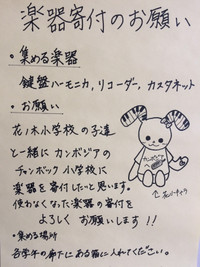 楽器寄付のお願い
・集める楽器
鍵盤ハーモニカ，リコーダー，カスタネット
・お願い
花ノ木小学校の子達
と一緒に カンボジアの
チャンボック 小学校に
楽器を寄付したいと思います。
使わなくなった楽器の寄付を
よろしく お願いします!!
・集める場所
各学年の廊下にある箱に入れてください。